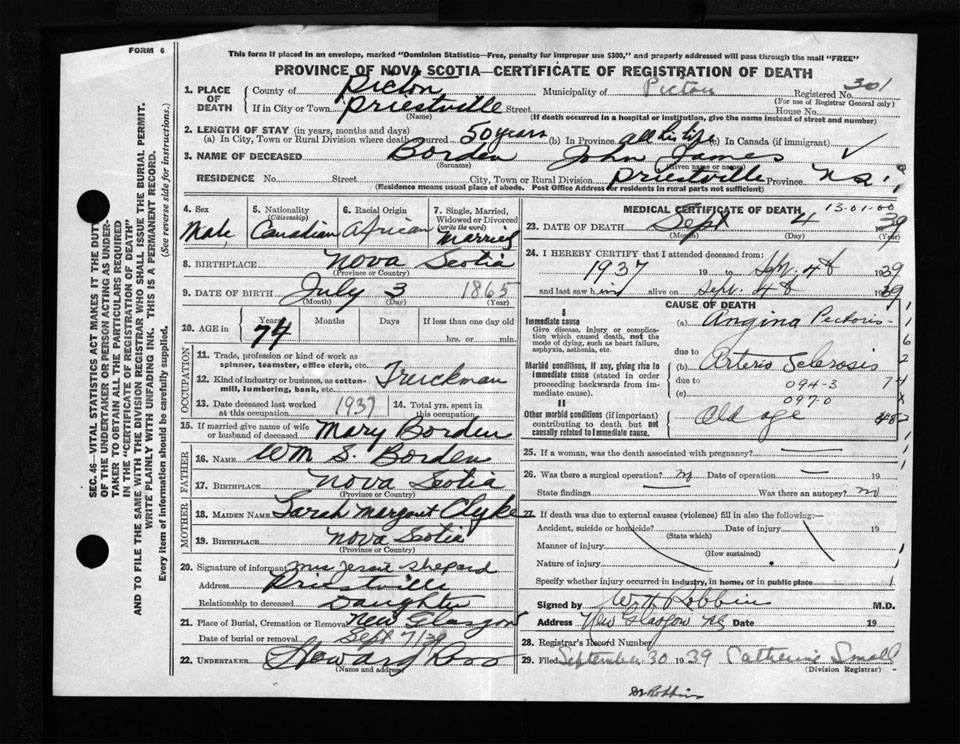 FORM 6
This form if placed in an envelope, marked "Dominion Statistics—Free, penalty for improper use $300," and properly addressed will pass through the mail "FREE"
PROVINCE OF NOVA SCOTIA—CERTIFICATE OF REGISTRATION OF DEATH
SEC. 46—VITAL STATISTICS ACT MAKES IT THE DUTY
OF THE UNDERTAKER OR PERSON ACTING AS UNDER-
TAKER TO OBTAIN ALL THE PARTICULARS REQUIRED
IN THE "CERTIFICATE OF REGISTRATION OF DEATH"
AND TO FILE THE SAME WITH THE DIVISION REGISTRAR WHO SHALL ISSUE THE BURIAL PERMIT.
WRITE PLAINLY WITH UNFADING INK. THIS IS A PERMANENT RECORD.
Every item of information should be carefully supplied. (See reverse side for instructions.)
1. PLACE OF DEATH County of Pictou Municipality of Pictou Registered No. 301
(For use of Registrar General only)
If in City or Town Priestville Street House No.
(Name) (If death occurred in a hospital or institution, give the name instead of street and number)
2. LENGTH OF STAY (in years, months and days)
(a) In City, Town or Rural Division where death occurred 50 years (b) In Province all his life (c) In Canada (if immigrant)
3. NAME OF DECEASED Borden John James
(Surname) (Given name or names)
RESIDENCE No. Street City, Town or Rural Division Priestville Province N.S.
(Residence means usual place of abode. Post Office Address for residents in rural parts not sufficient)
4. Sex Male
5. Nationality (Citizenship) Canadian
6. Racial Origin African
7. Single, Married, Widowed or Divorced (write the word) Married
8. BIRTHPLACE Nova Scotia
(Province or Country)
9. DATE OF BIRTH July 3 1865
(Month) (Day) (Year)
10. AGE in Years Months Days If less than one day old
74 hrs. or min.
OCCUPATION
11. Trade, profession or kind of work as spinner, teamster, office clerk, etc.
12. Kind of industry or business, as cotton-mill, lumbering, bank, etc. Truckman
13. Date deceased last worked at this occupation 1937 14. Total yrs. spent in this occupation
15. If married give name of wife or husband of deceased Mary Borden
FATHER
16. NAME Wm S. Borden
17. BIRTHPLACE Nova Scotia
(Province or Country)
MOTHER
18. MAIDEN NAME Sarah Margaret Clyke
19. BIRTHPLACE Nova Scotia
(Province or Country)
20. Signature of informant Mrs Jessie Shepard
Address Priestville
Relationship to deceased Daughter
21. Place of Burial, Cremation or Removal New Glasgow
Date of burial or removal Sept 7/39
22. UNDERTAKER Howard Ross
(Name and address)
MEDICAL CERTIFICATE OF DEATH 13-01-00
23. DATE OF DEATH Sept 4 1939
(Month) (Day) (Year)
24. I HEREBY CERTIFY that I attended deceased from:
1937 19 to Sept. 4th 1939
and last saw him alive on Sept. 4th 1939
CAUSE OF DEATH
I
Immediate cause
Give disease, injury or complication which caused death, not the mode of dying, such as heart failure, asphyxia, asthenia, etc.
(a) Angina Pectoris
due to
Morbid conditions, if any, giving rise to immediate cause (stated in order proceeding backwards from immediate cause).
(b) Arterio Sclerosis
due to 094-3
(c) 097-0
II
Other morbid conditions (if important) contributing to death but not causally related to immediate cause.
Old age
25. If a woman, was the death associated with pregnancy?
26. Was there a surgical operation? no Date of operation 19
State findings Was there an autopsy? no
27. If death was due to external causes (violence) fill in also the following:—
Accident, suicide or homicide? Date of injury 19
(State which)
Manner of injury
(How sustained)
Nature of injury
Specify whether injury occurred in industry, in home, or in public place
Signed by Robbins M.D.
Address New Glasgow NS Date 19
28. Registrar's Record Number
29. Filed September 30 1939 Catherine Small
(Division Registrar)
Dr Robbins